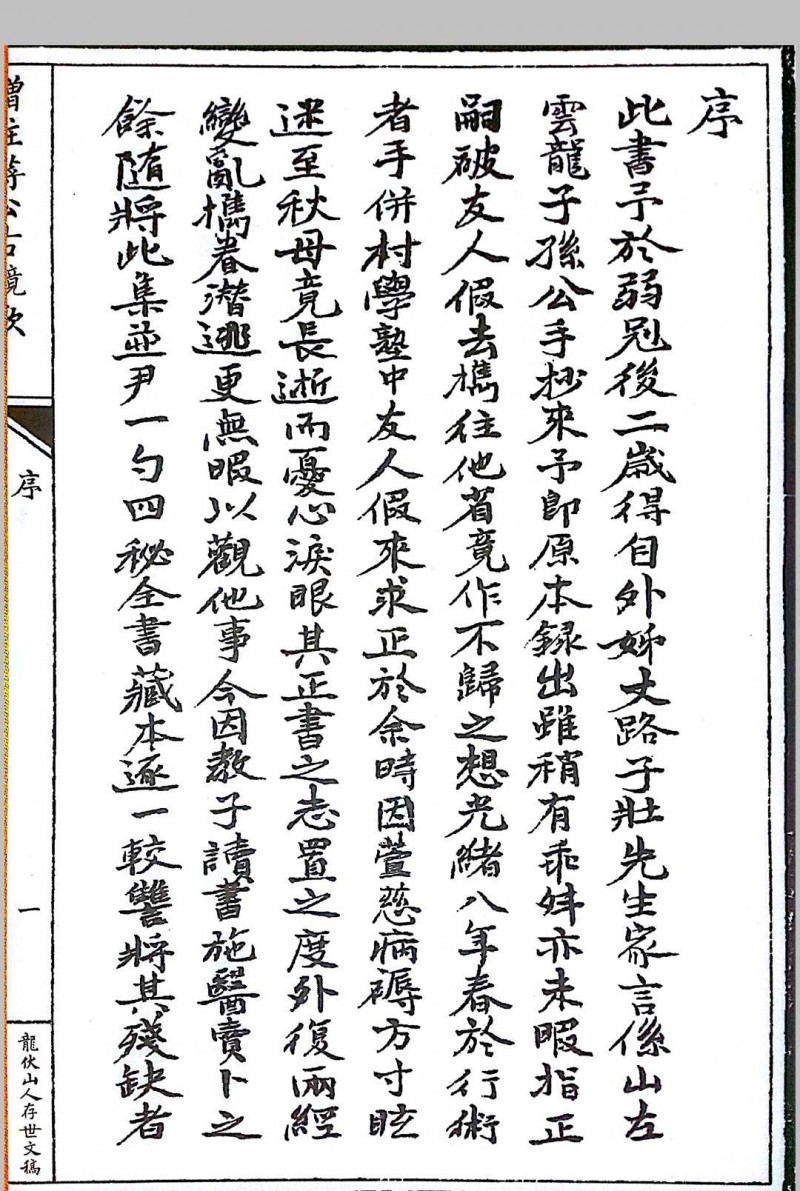 序
此書予於弱冠後二歲得自外姊丈路子壯先生家言係山左
雲龍子孫公手抄來予即原本錄出雖稍有乖舛亦未暇指正
嗣破友人假去攜往他省竟作不歸之想光緒八年春於行術
者手併村學塾中友人假來求正於余時因萱慈病磗方寸眩
迷至秋母竟長逝而憂心淚眼其正書之志置之度外復兩經
變亂攜眷潛逃更無暇以觀他事今因教子讀書施醫賣卜之
餘隨將此集並尹一勺四秘全書藏本逐一較讐將其殘缺者
序
一
龍伏山人存世文稿